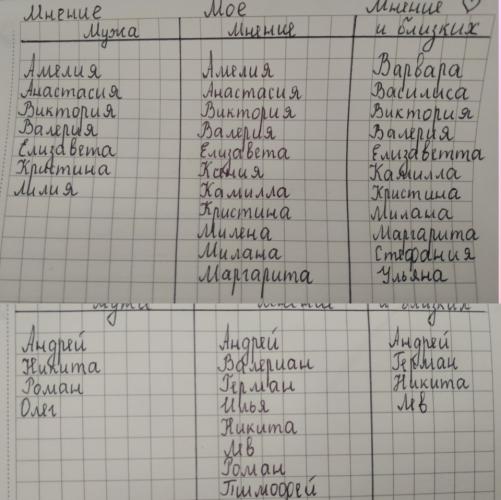 Мнение Мое Мнение ♡
Мужа Мнение и близких
Амелия Амелия Варвара
Анастасия Анастасия Василиса
Виктория Виктория Виктория
Валерия Валерия Валерия
Елизавета Елизавета Елизаветта
Кристина Ксения Камилла
Лилия Камилла Кристина
Кристина Милана
Милена Маргарита
Милана Стефания
Маргарита Ульяна
Андрей Андрей Андрей
Никита Валериан Герман
Роман Герман Никита
Олег Илья Лев
Никита
Лев
Роман
Тимофей